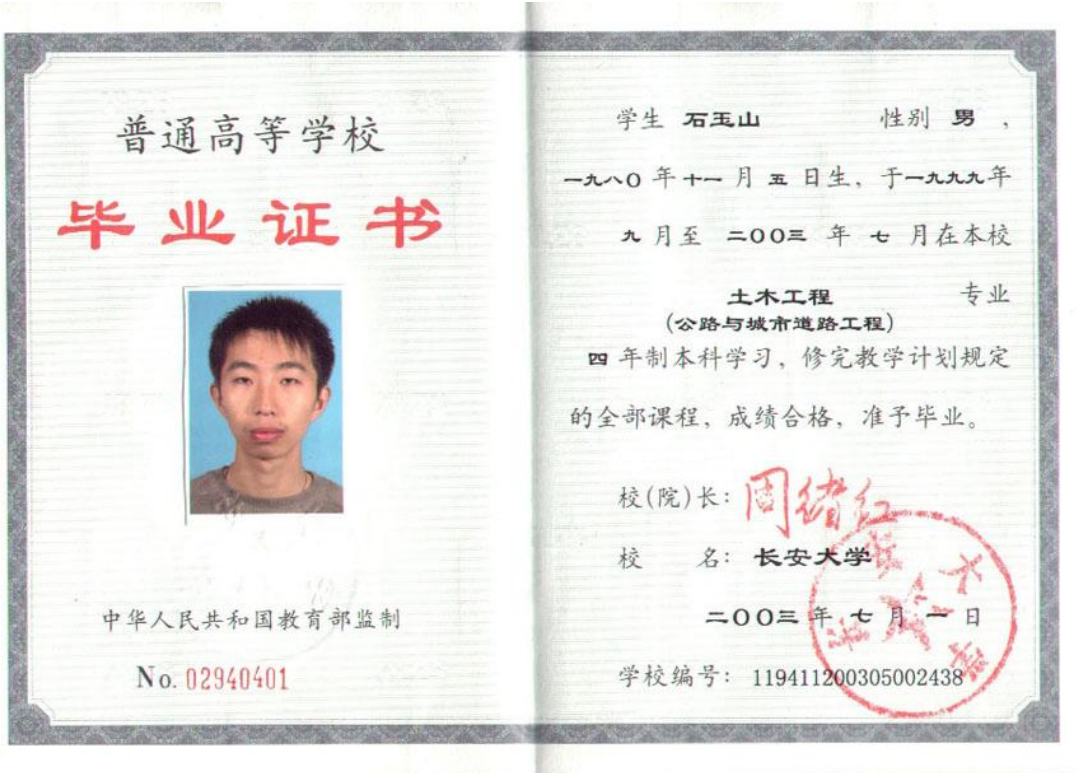 普通高等学校
毕业证书
中华人民共和国教育部监制
No. 02940401
学生 石玉山 性别 男，
一九八〇年十一月五日生，于一九九九年
九月至 二〇〇三 年 七 月在本校
土木工程 专业
(公路与城市道路工程)
四年制本科学习，修完教学计划规定
的全部课程，成绩合格，准予毕业。
校(院)长：周绪红
校 名：长安大学
二〇〇三年七月一日
学校编号：119411200305002438
长安大学